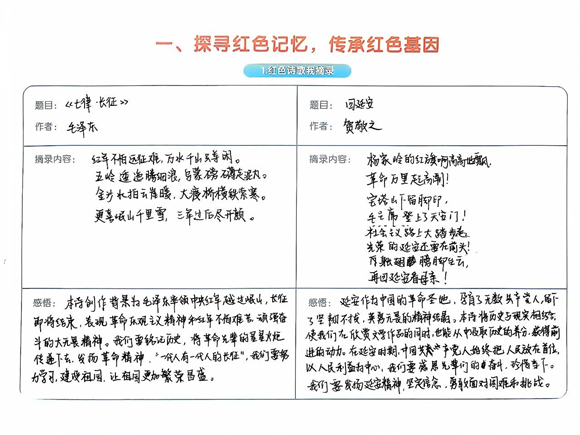 一、探寻红色记忆，传承红色基因
1.红色诗歌我摘录
题目：《七律·长征》
作者：毛泽东
摘录内容：红军不怕远征难，万水千山只等闲。
五岭逶迤腾细浪，乌蒙磅礴走泥丸。
金沙水拍云崖暖，大渡桥横铁索寒。
更喜岷山千里雪，三军过后尽开颜。
感悟：本诗创作背景为毛泽东率领中央红军越过岷山，长征
即将结束，表现革命乐观主义精神和红军不怕艰难、顽强奋
斗的大无畏精神。我们要铭记历史，将革命先辈的星星火炬
传递下去，发扬革命精神，“一代人有一代人的长征”，我们要努
力学习，建设祖国，让祖国更加繁荣昌盛。
题目：回延安
作者：贺敬之
摘录内容：杨家岭的红旗啊高高地飘，
革命万里起高潮！
宝塔山下留脚印，
毛主席登上了天安门！
社会主义路上大踏步走，
光荣的延安还要在前头！
身长翅膀吧脚生云，
再回延安看母亲！
感悟：延安作为中国的革命圣地，孕育了无数共产党人，留下
了坚韧不拔、英勇无畏的精神结晶。本诗将历史与现实相结合，
使我们在欣赏文学作品的同时，也能从中汲取历史的养分，获得前
进的动力。在延安时期，中国共产党人始终把人民放在首位，
以人民利益为中心，我们要感恩先辈们的奋斗，珍惜当下。
我们要发扬延安精神，坚定信念，勇敢面对困难和挑战。